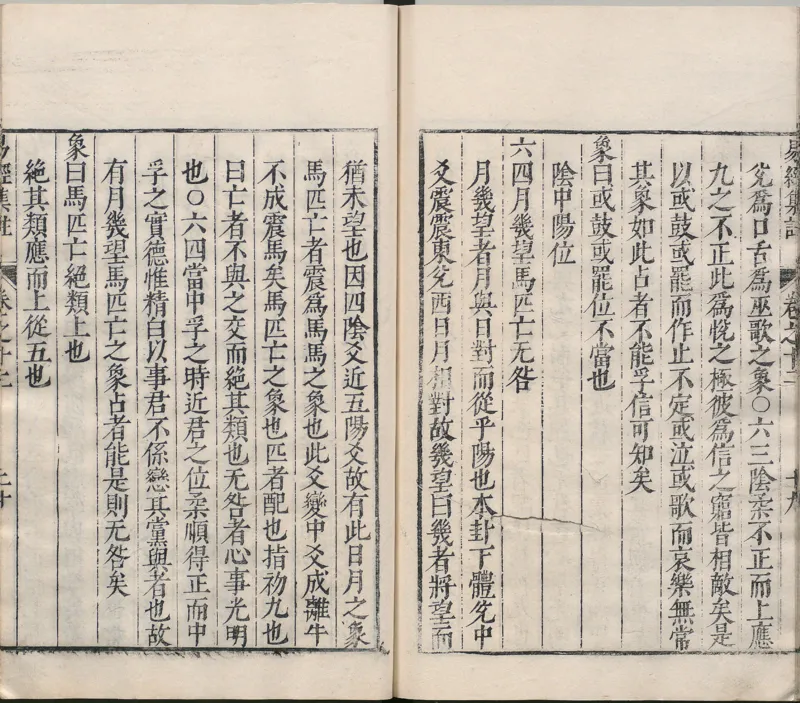 易經集註
卷之十二
十九
兌爲口舌爲巫歌之象〇六三陰柔不正而上應
九之不正此爲恱之極彼爲信之窮皆相敵矣是
以或鼓或罷而作止不定或泣或歌而哀樂無常
其象如此占者不能孚信可知矣
象曰或鼓或罷位不當也
陰中陽位
六四月幾望馬匹亡无咎
月幾望者月與日對而從乎陽也本卦下體兌中
爻震震東兌西日月相對故幾望曰幾者將望而
猶未望也因四陰爻近五陽爻故有此日月之象
馬匹亡者震爲馬馬之象也此爻變中爻成離牛
不成震馬矣馬匹亡之象也匹者配也指初九也
曰亡者不與之交而絕其類也无咎者心事光明
也〇六四當中孚之時近君之位柔順得正而中
孚之實德惟精白以事君不係戀其黨與者也故
有月幾望馬匹亡之象占者能是則无咎矣
象曰馬匹亡絕類上也
絕其類應而上從五也
易經集註
卷之十二
二十